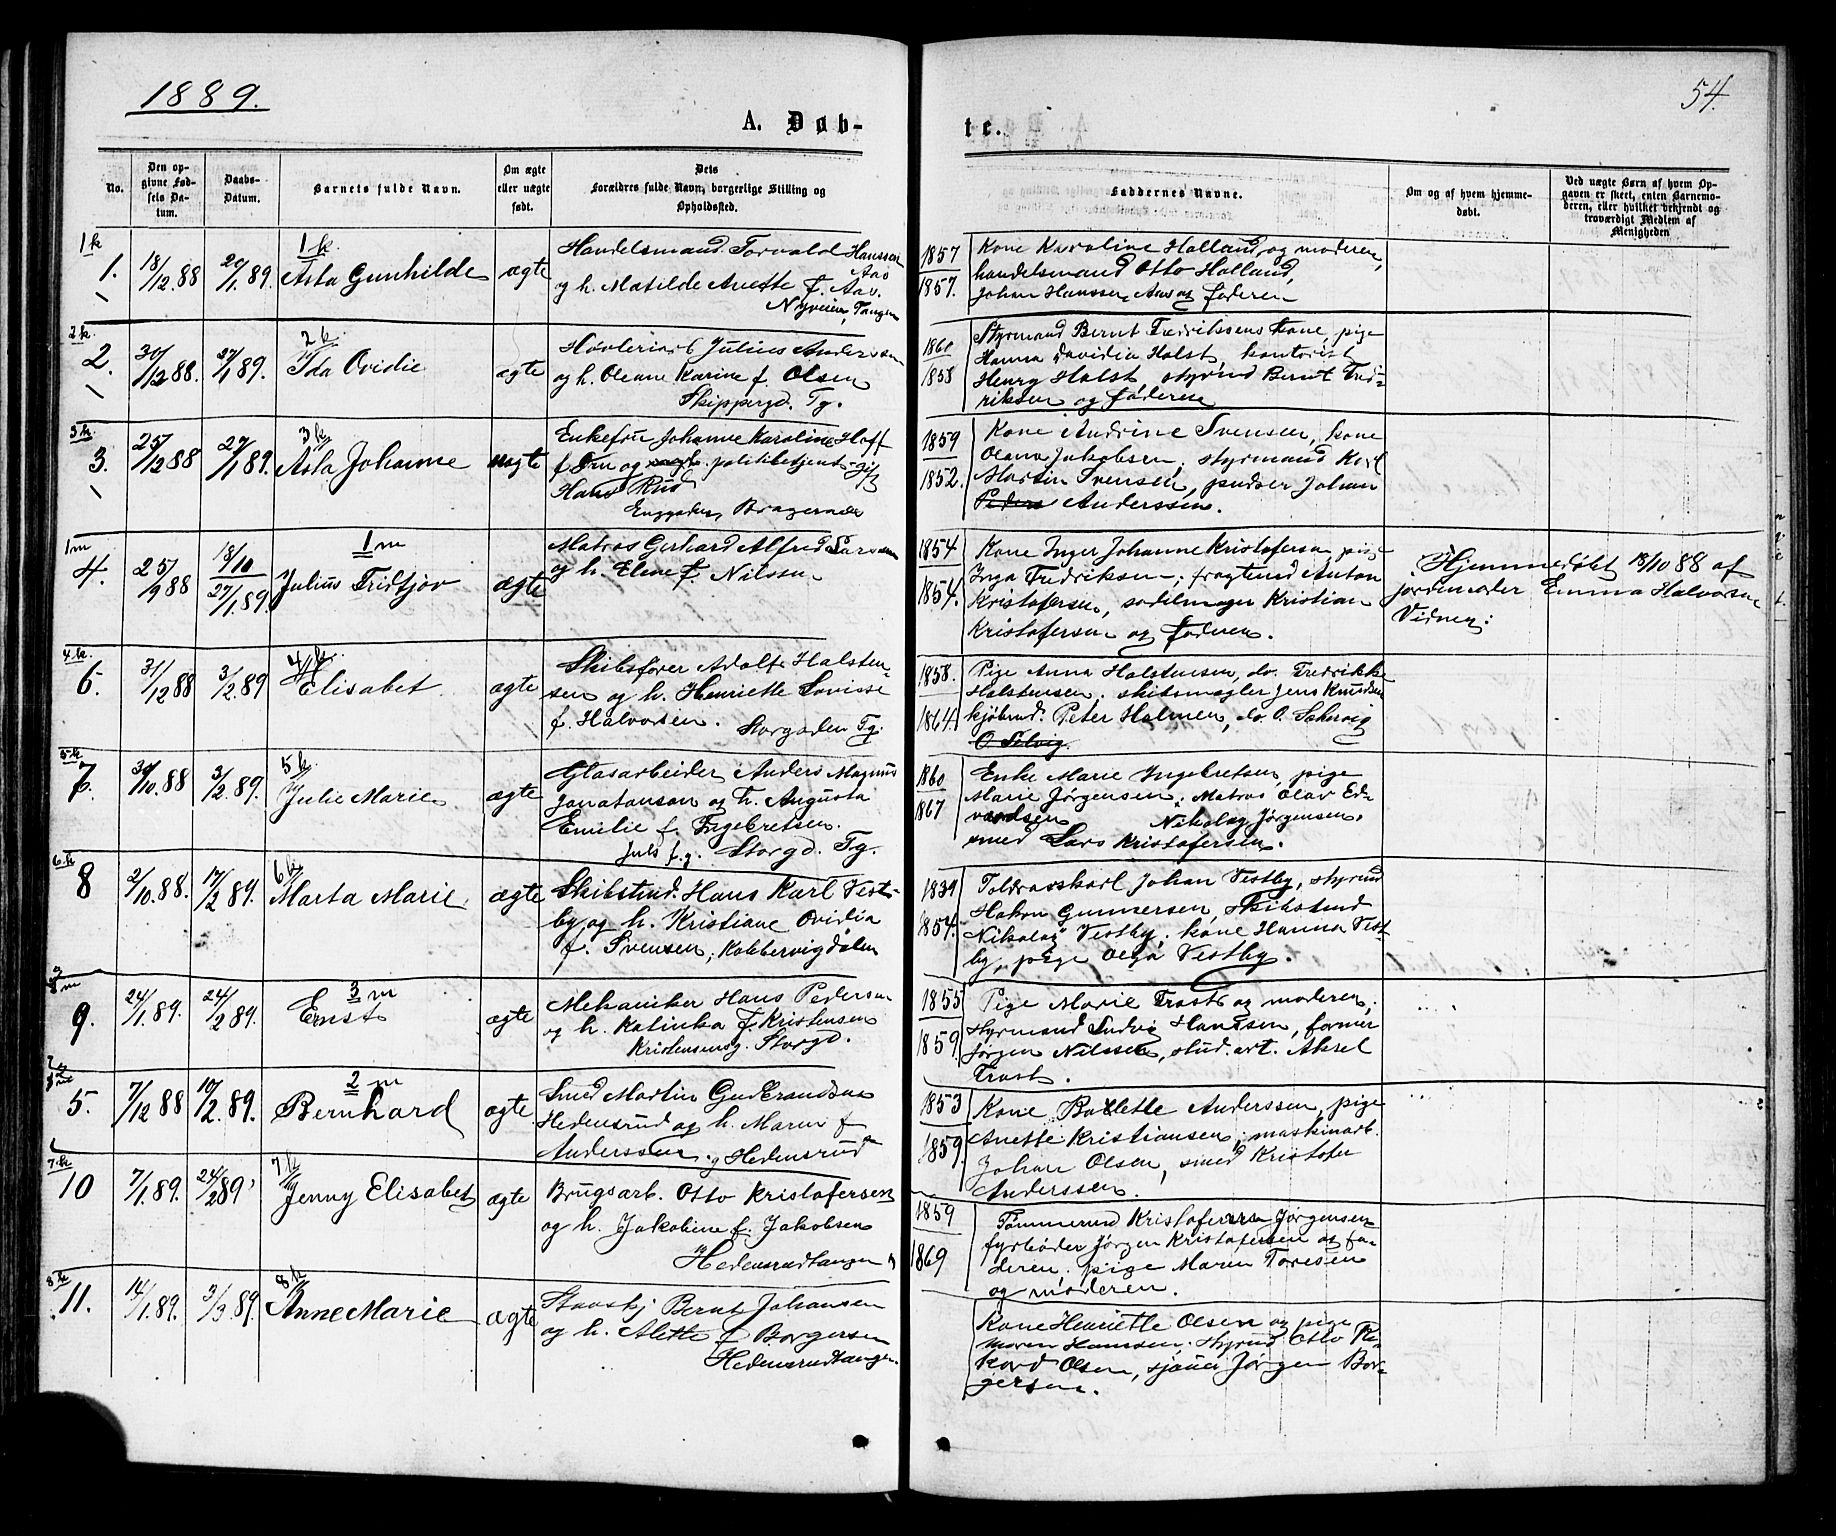 1889.
A. Døb-
No.
Den op-
givne Fød-
sels Da-
tum.
Daabs-
Datum.
Barnets fulde Navn.
Om ægte
eller uægte
født.
Dets
Forældres fulde Navn, borgerlige Stilling og
Opholdssted.
1 k
1.
18/12 88
20/1 89.
1 k.
Asta Gunhilde
ægte
Handelsmand Torvald Hanssen
Aas
og h. Matilde Anette f. Aav.
Nyveien, Tangen
2 k.
2.
30/12 88.
27/1 89.
2 k
Ida Ovidie
ægte
Høvleriarb Julius Andersen
og h. Oleane Karine f. Olsen
Skippergd. Tg.
3 k.
3.
25/12 88
27/1 89.
3 k
Asta Johanne
uægte
Enkefru Johanne Karoline Hoff
f. Dru og politibetjent gift
Hans Rud
Enggaden, Bragernæs
1 m
4.
25/9 88
18/10
27/1 89
1 m
Julius Fridtjov
ægte
Matros Gerhard Alfred Larsen
og h. Eline f. Nilssen
4 k.
6.
31/12 88
3/2 89
4 k.
Elisabet
ægte
Skibsfører Adolf Halsten-
sen og h. Henriette Lovisse
f. Halvorsen. Storgaden Tg.
5 k
7.
30/10 88
3/2 89.
5 k.
Julie Marie
ægte
Glasarbeider Anders Magnus
Jonatanson og h. Augusta
Emilie f. Ingebretsen.
Juls f. g. Storgd. Tg.
6 k
8
2/10 88.
17/2 89.
6 k
Marta Marie
ægte
Skibstmd. Hans Karl Vest-
by og h. Kristiane Ovidia
f. Svensen, Kobbervigdalen
9.
24/1 89.
24/2 89.
3 m
Ernst
ægte
Mekaniker Hans Pedersen
og h. Katinka f. Kristensen
Kristensensg. Storgd.
5.
7/12 88
10/2 89.
2 m
Bernhard
ægte
Smed Martin Gudbrandsen
Hedensrud og h. Maren f.
Anderssen. g Hedensrud
7 k
10
7/1 89.
24/2 89
7 k
Jenny Elisabet
ægte
Brugsarb. Otto Kristofersen
og h. Jakobine f. Jakobsen
Hedensrudtangen
8 k
11.
14/1 89.
3/3 89.
8 k
Anne Marie
ægte
Bernt Johansen
og h. Alette f. Borgersen
Hedensrudtangen.
54.
te.
Faddernes Navne.
Om og af hvem hjemme-
døbt.
Ved uægte Børn af hvem Op-
gaven er skeet, enten Barnemo-
deren, eller hvilket bekjendt og
troværdigt Medlem af
Menigheden
1857
1857.
Kone Karoline Holland, og moderen,
handelsmand Otto Holland,
Johan Hanssen Aas og faderen
1860
1858
Styrmand Bernt Fredrikssens kone, pige
Hanna Davidia Holst, kontorist
Henry Holst, styrmd Bernt Fred-
riksen og faderen
1859
1852.
Kone Andrine Svensen, kone
Olava Jakobsen, styrmand Karl
Martin Svensen, pudser Johan
Peders Anderssen.
1854
1854.
Kone Inger Johanne Kristofersen, pige
Inga Fredriksen; fragtmd Anton
Kristofersen, sadelmager Kristian
Kristofersen og faderen.
Hjemmedøbt 18/10 88 af
jordemoder Emma Halvorsen
Vidner:
1858.
1864
Pige Anna Halstensen, do. Fredrikke
Halstensen. skibsmægler Jens Knudsen
kjøbmd. Peter Holmen, do O. Solverig
O Solvig.
1860
1867
Enke Marie Ingebretsen, pige
Marie Jørgensen. Matros Olav Ed-
vardsen Nikolay Jørgensen.
smed Lars Kristofersen.
1839
1854.
Toldrosskarl Johan Vestby, styrmd
Hakon Gunnersen, skibstmd
Nikolay Vestby, kone Hanna Vest-
by, pige Olga Vestby.
1855
1859
Pige Marie Trost og moderen.
Styrmand Ludvig Hanssen, former
Jørgen Nilssen, stud. art. Aksel
Trost.
1853
1859.
Kone Bollette Anderssen, pige
Anette Kristiansen, maskinarb.
Johan Olsen, smed Kristofer
Anderssen.
1859
1869
Tømmermd Kristofer Jørgensen
fyrbøder Jørgen Kristofersen og fa-
deren, pige Maren Toresen
og moderen.
Kone Henriette Olsen og pige
Maren Hanssen. styrmd Otto Ri-
kard Olsen, sjauer Jørgen Bor-
gersen.